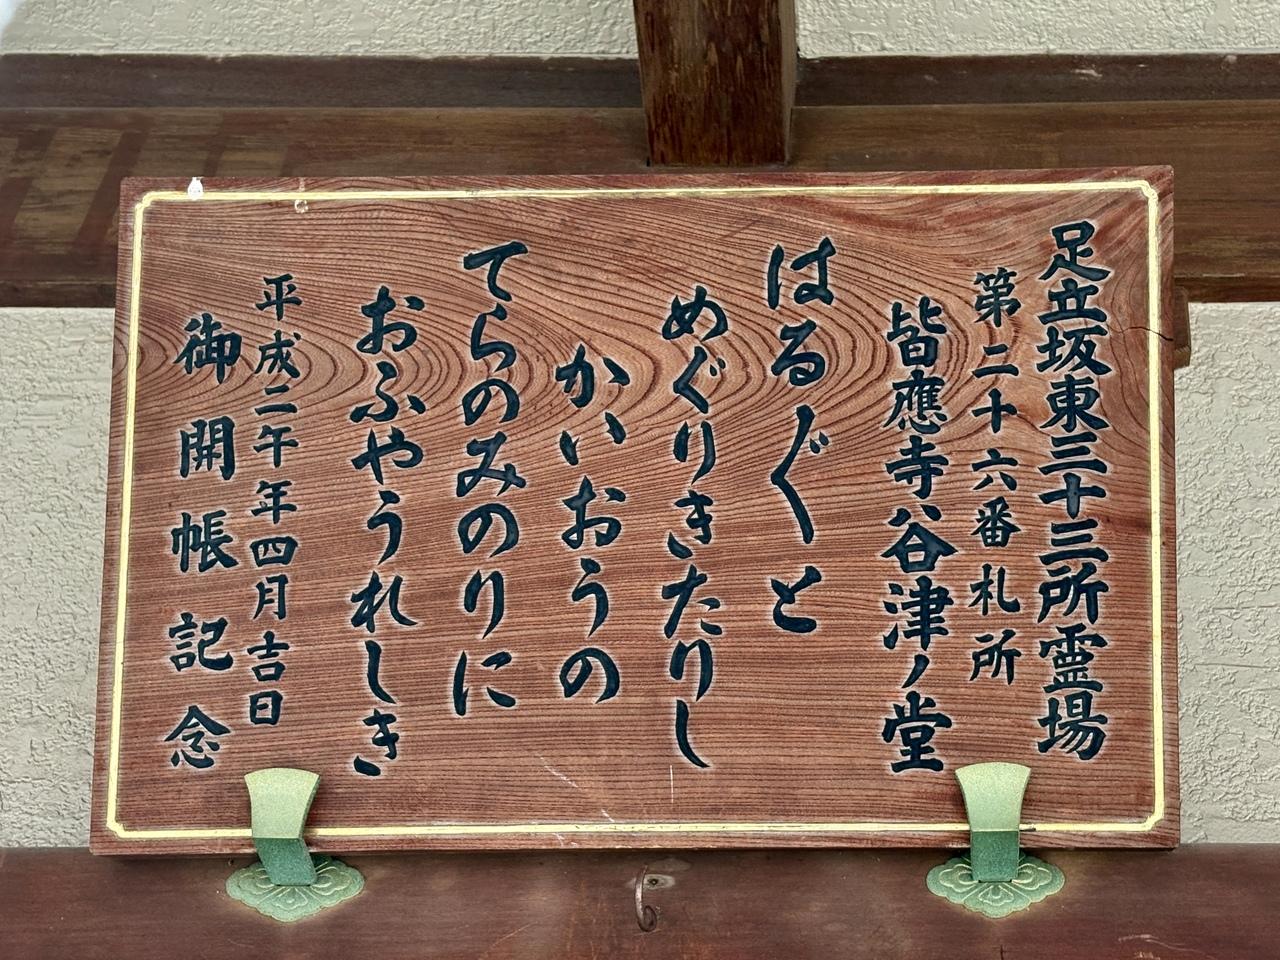 足立坂東三十三所霊場
第二十六番札所
皆應寺谷津ノ堂
はるぐと
めぐりきたりし
かいおうの
てらのみのりに
おふやうれしき
平成二午年四月吉日
御開帳記念